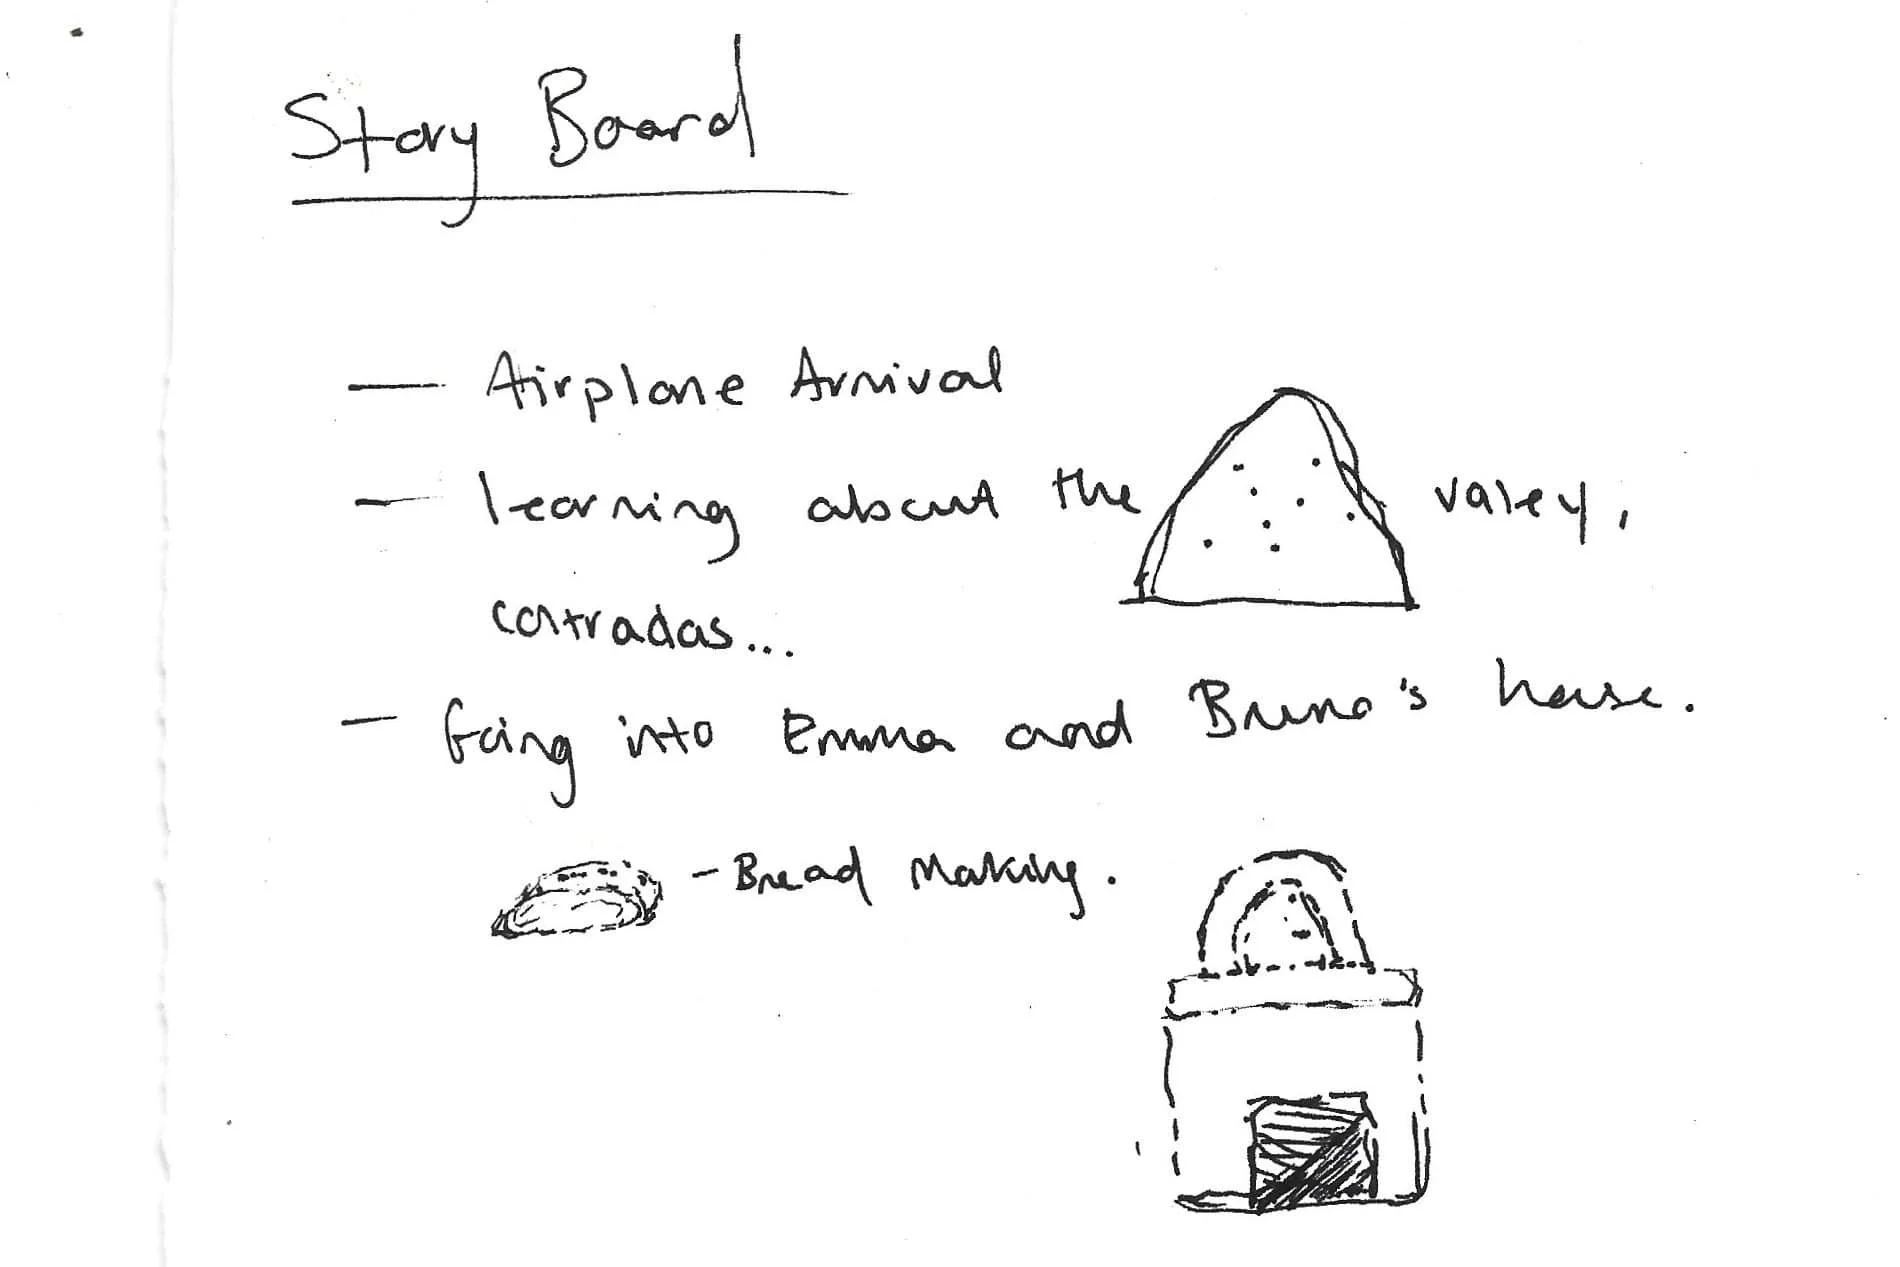 Story Board
— Airplane Arrival
— learning about the valey,
contradas...
— Going into Emma and Bruno's house.
- Bread Making.